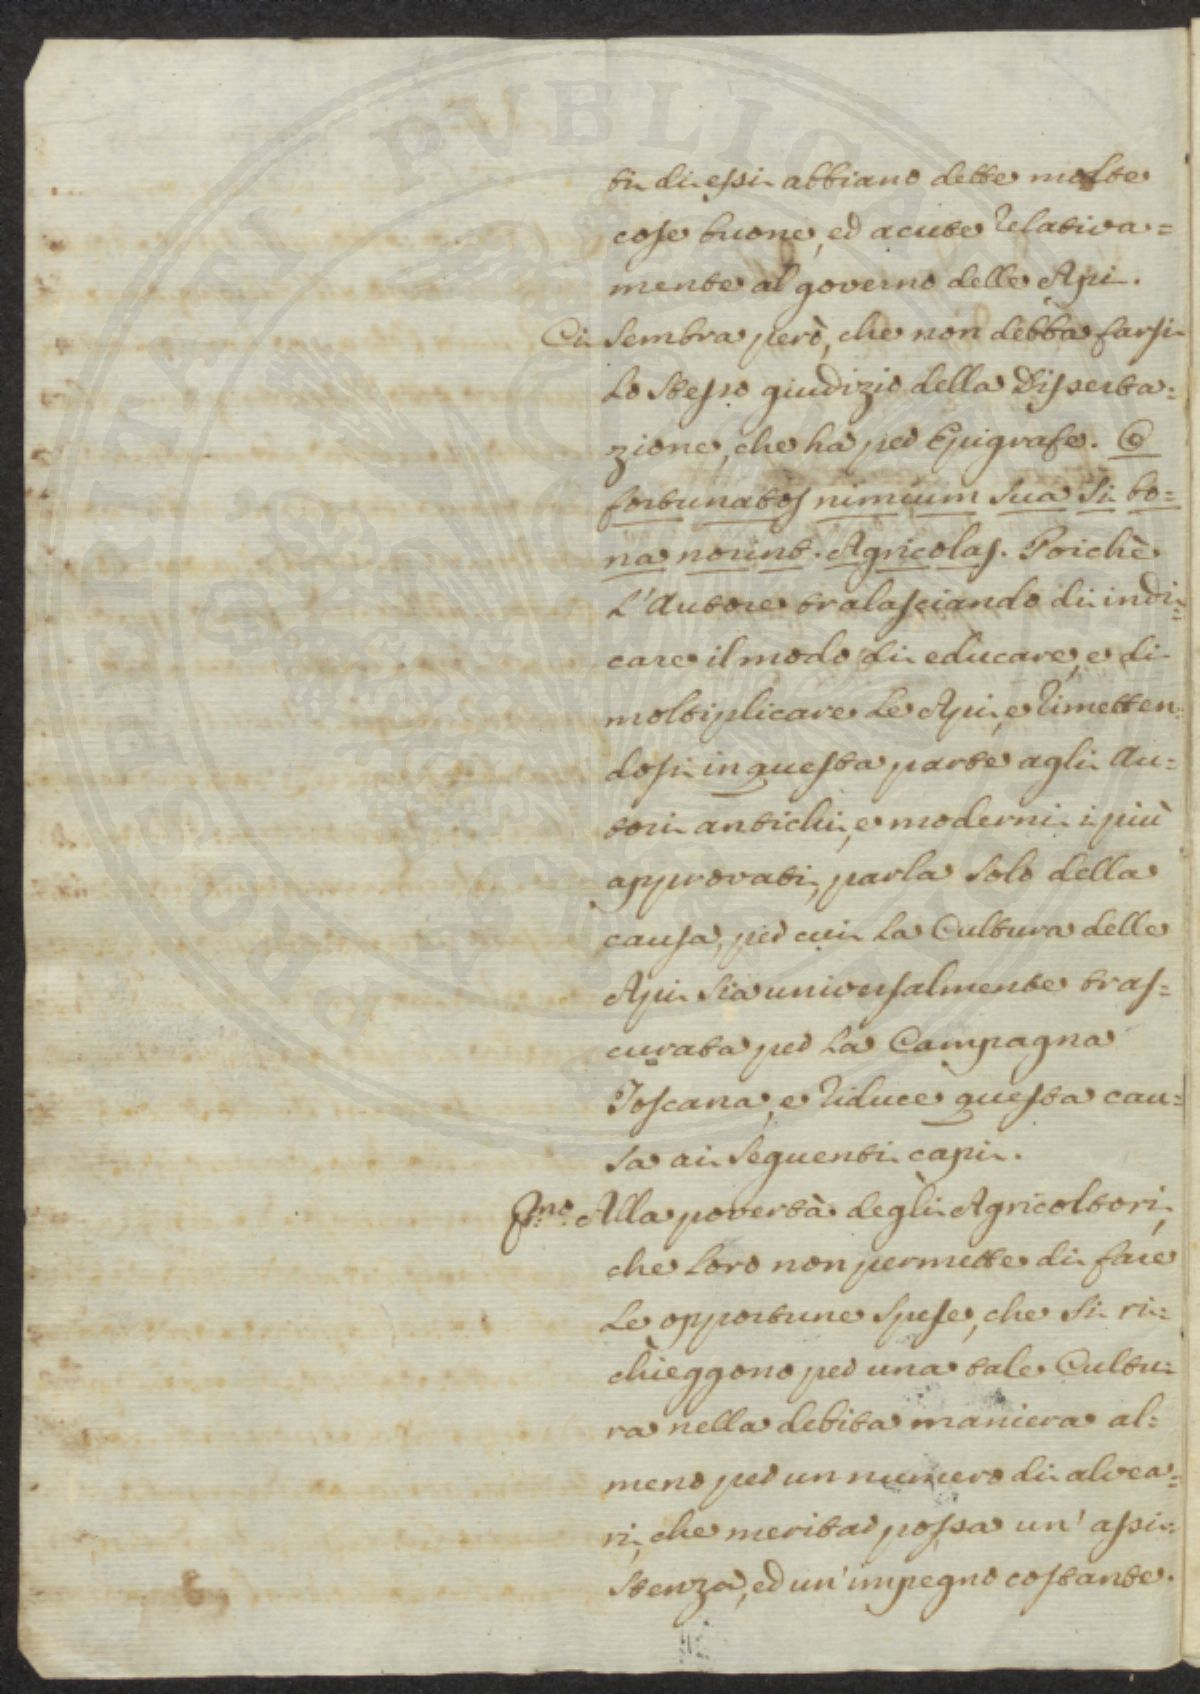 ti di essi abbiano dette molte
cose buone, ed acute relativa=
mente al governo delle Api.
Ci sembra però, che non debba farsi
lo stesso giudizio della Disserta=
zione, che ha per Epigrafe. O
fortunatos nimium sua si bo=
na norint. Agricolas. Poichè
l'Autore tralasciando di indi=
care il modo di educare, e di
moltiplicare le Api, e rimetten=
dosi in questa parte agli Au=
tori antichi, e moderni i più
approvati, parla solo della
causa, per cui la Cultura delle
Api sia universalmente tras=
curata per la Campagna
Toscana, e riduce questa cau=
sa ai seguenti capi.
P.mo Alla povertà degli Agricoltori,
che loro non permette di fare
le opportune spese, che si ri=
chieggono per una tale Cultu=
ra nella debita maniera al=
meno per un numero di alvea=
ri, che meritar possa un' assi=
stenza, ed un' impegno costante.
PVBLICA